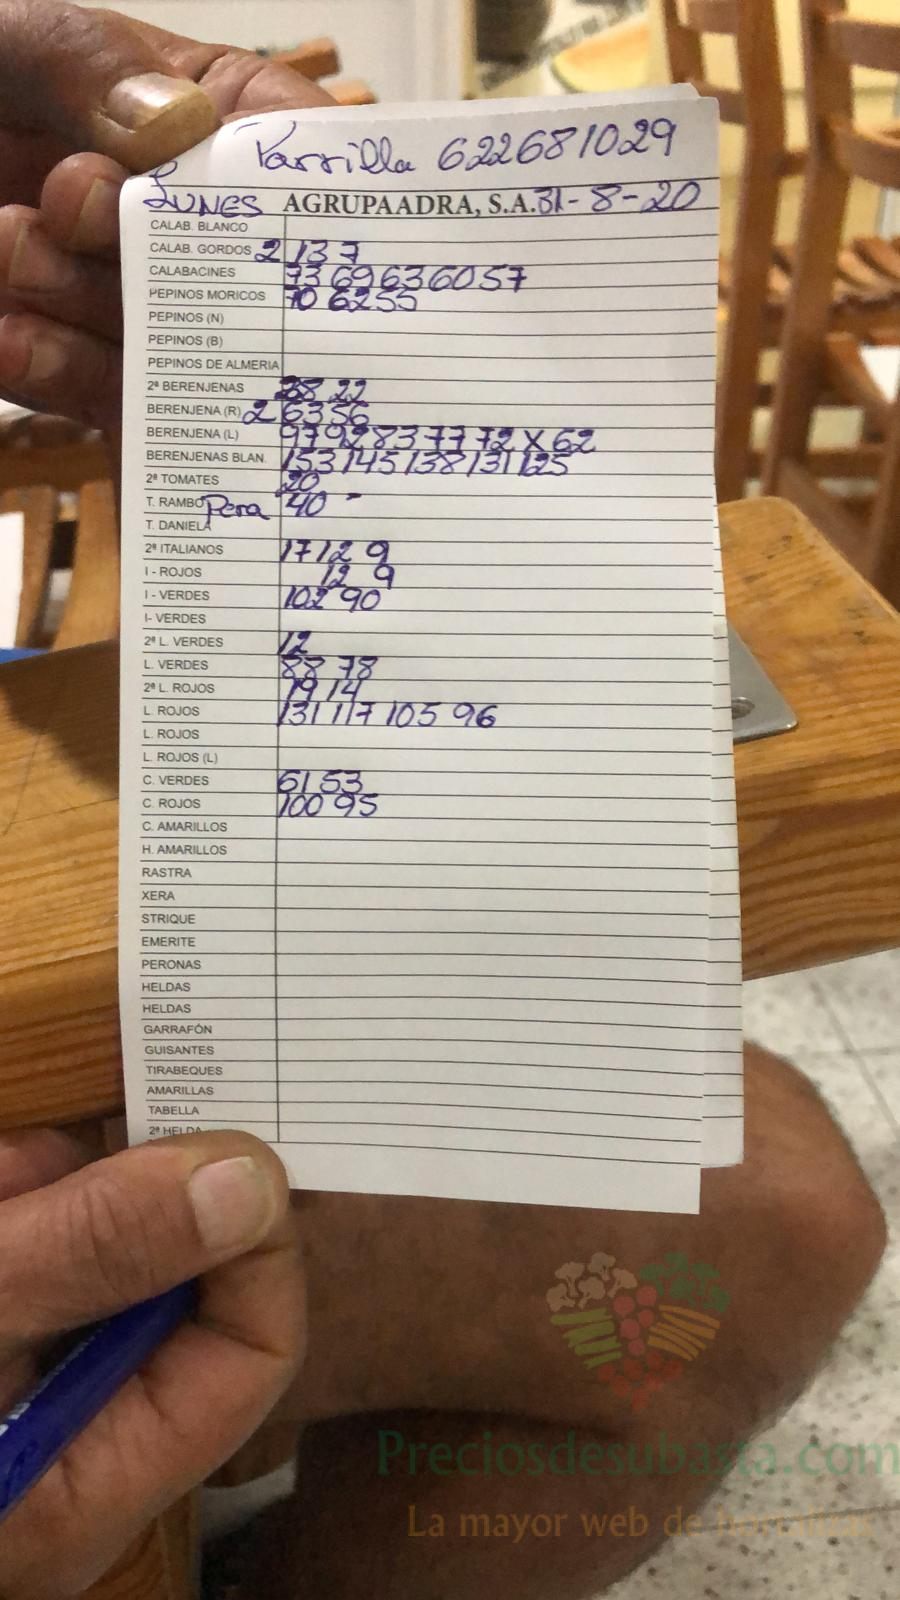 Parrilla 622681029
LUNES AGRUPAADRA, S.A. 31-8-20
CALAB. BLANCO
CALAB. GORDOS 2 13 7
CALABACINES 73 69 63 60 57
PEPINOS MORICOS 70 62 55
PEPINOS (N)
PEPINOS (B)
PEPINOS DE ALMERIA
2ª BERENJENAS 38 22
BERENJENA (R) 2 63 56
BERENJENA (L) 97 92 83 77 72 X 62
BERENJENAS BLAN. 153 145 138 131 125
2ª TOMATES 20
T. RAMBO Pera 40 -
T. DANIELA
2ª ITALIANOS 17 12 9
I - ROJOS 12 9
I - VERDES 102 90
I- VERDES
2ª L. VERDES 12
L. VERDES 88 78
2ª L. ROJOS 19 14
L. ROJOS 131 117 105 96
L. ROJOS
L. ROJOS (L)
C. VERDES 61 53
C. ROJOS 100 95
C. AMARILLOS
H. AMARILLOS
RASTRA
XERA
STRIQUE
EMERITE
PERONAS
HELDAS
HELDAS
GARRAFÓN
GUISANTES
TIRABEQUES
AMARILLAS
TABELLA
2ª HELDA
Preciosdesubasta.com
La mayor web de hortalizas